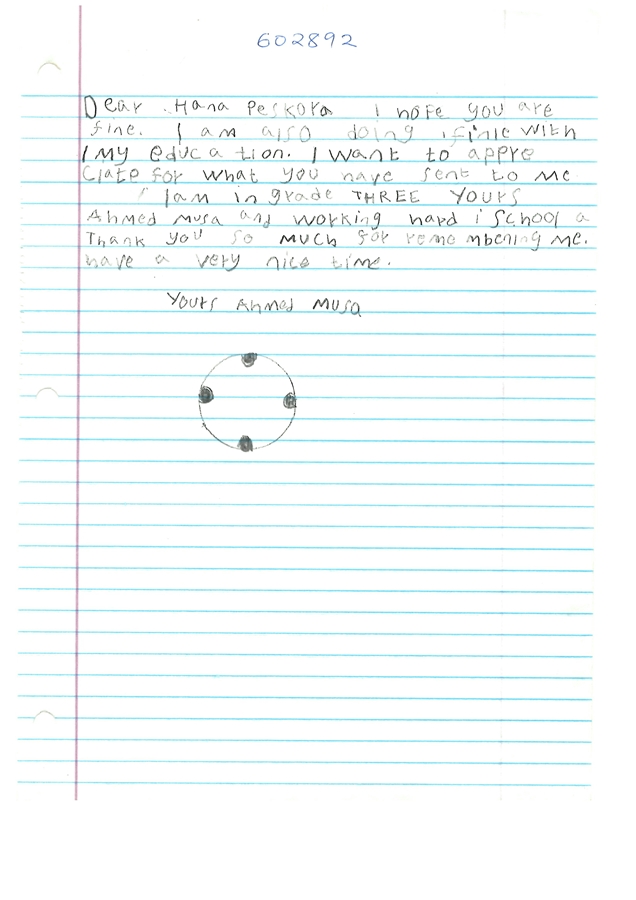 602892
Dear Hana Peskova I hope you are
fine. I am also doing finie with
my education. I want to appre
ciate for what you have sent to me
I am in grade THREE YOURS
Ahmed Musa and working hard i school a
Thank you so much for remembening me.
have a very nice time.
Yours Ahmed Musa